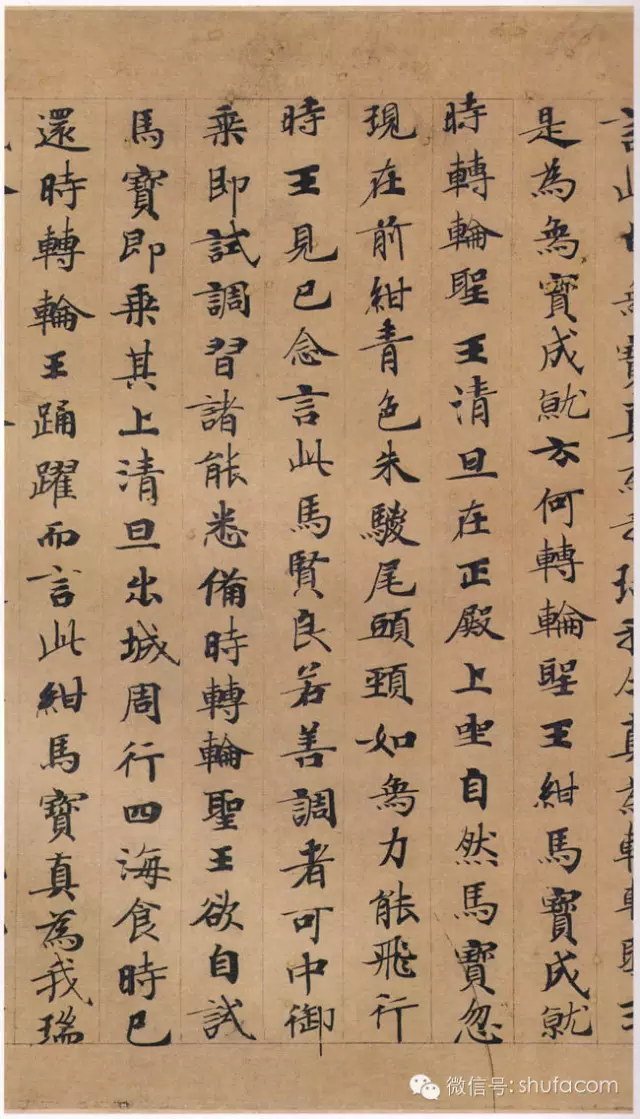 是為象寶成就云何轉輪聖王紺馬寶成就
時轉輪聖王清旦在正殿上坐自然馬寶忽
現在前紺青色朱駿尾頭頸如象力能飛行
時王見已念言此馬賢良若善調者可中御
乘即試調習諸能悉備時轉輪聖王欲自試
馬寶即乘其上清旦出城周行四海食時已
還時轉輪王踊躍而言此紺馬寶真為我瑞
微信号: shufacom